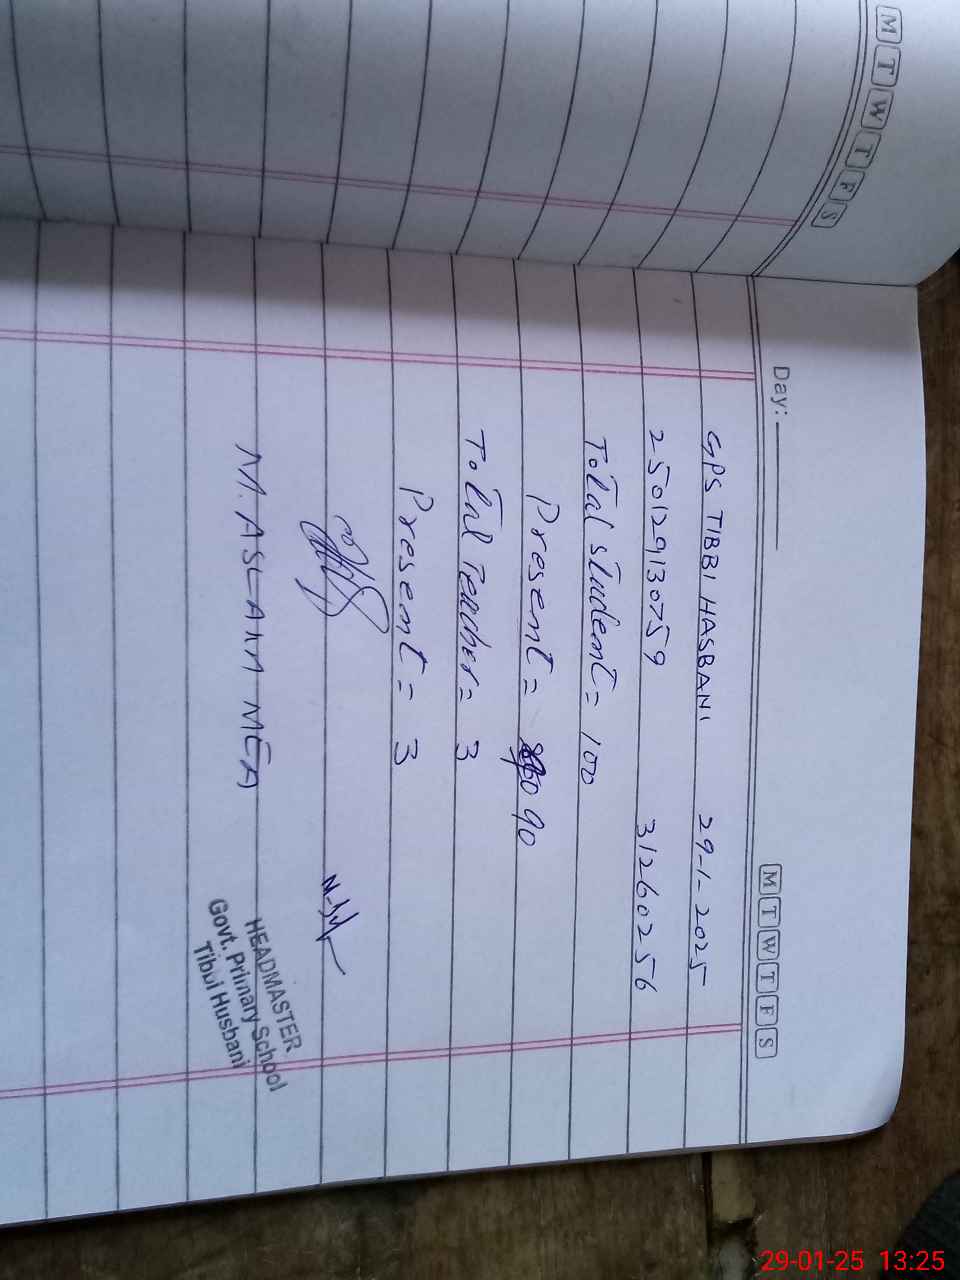 M T W T F S
Day:
M T W T F S
GPS TIBBI HASBANI 29-1-2025
250129130759 31260256
Total student = 100
Present = 90
Total Teacher = 3
Present = 3
M. ASLAM MEA
HEADMASTER
Govt. Primary School
Tibbi Husbani
29-01-25 13:25